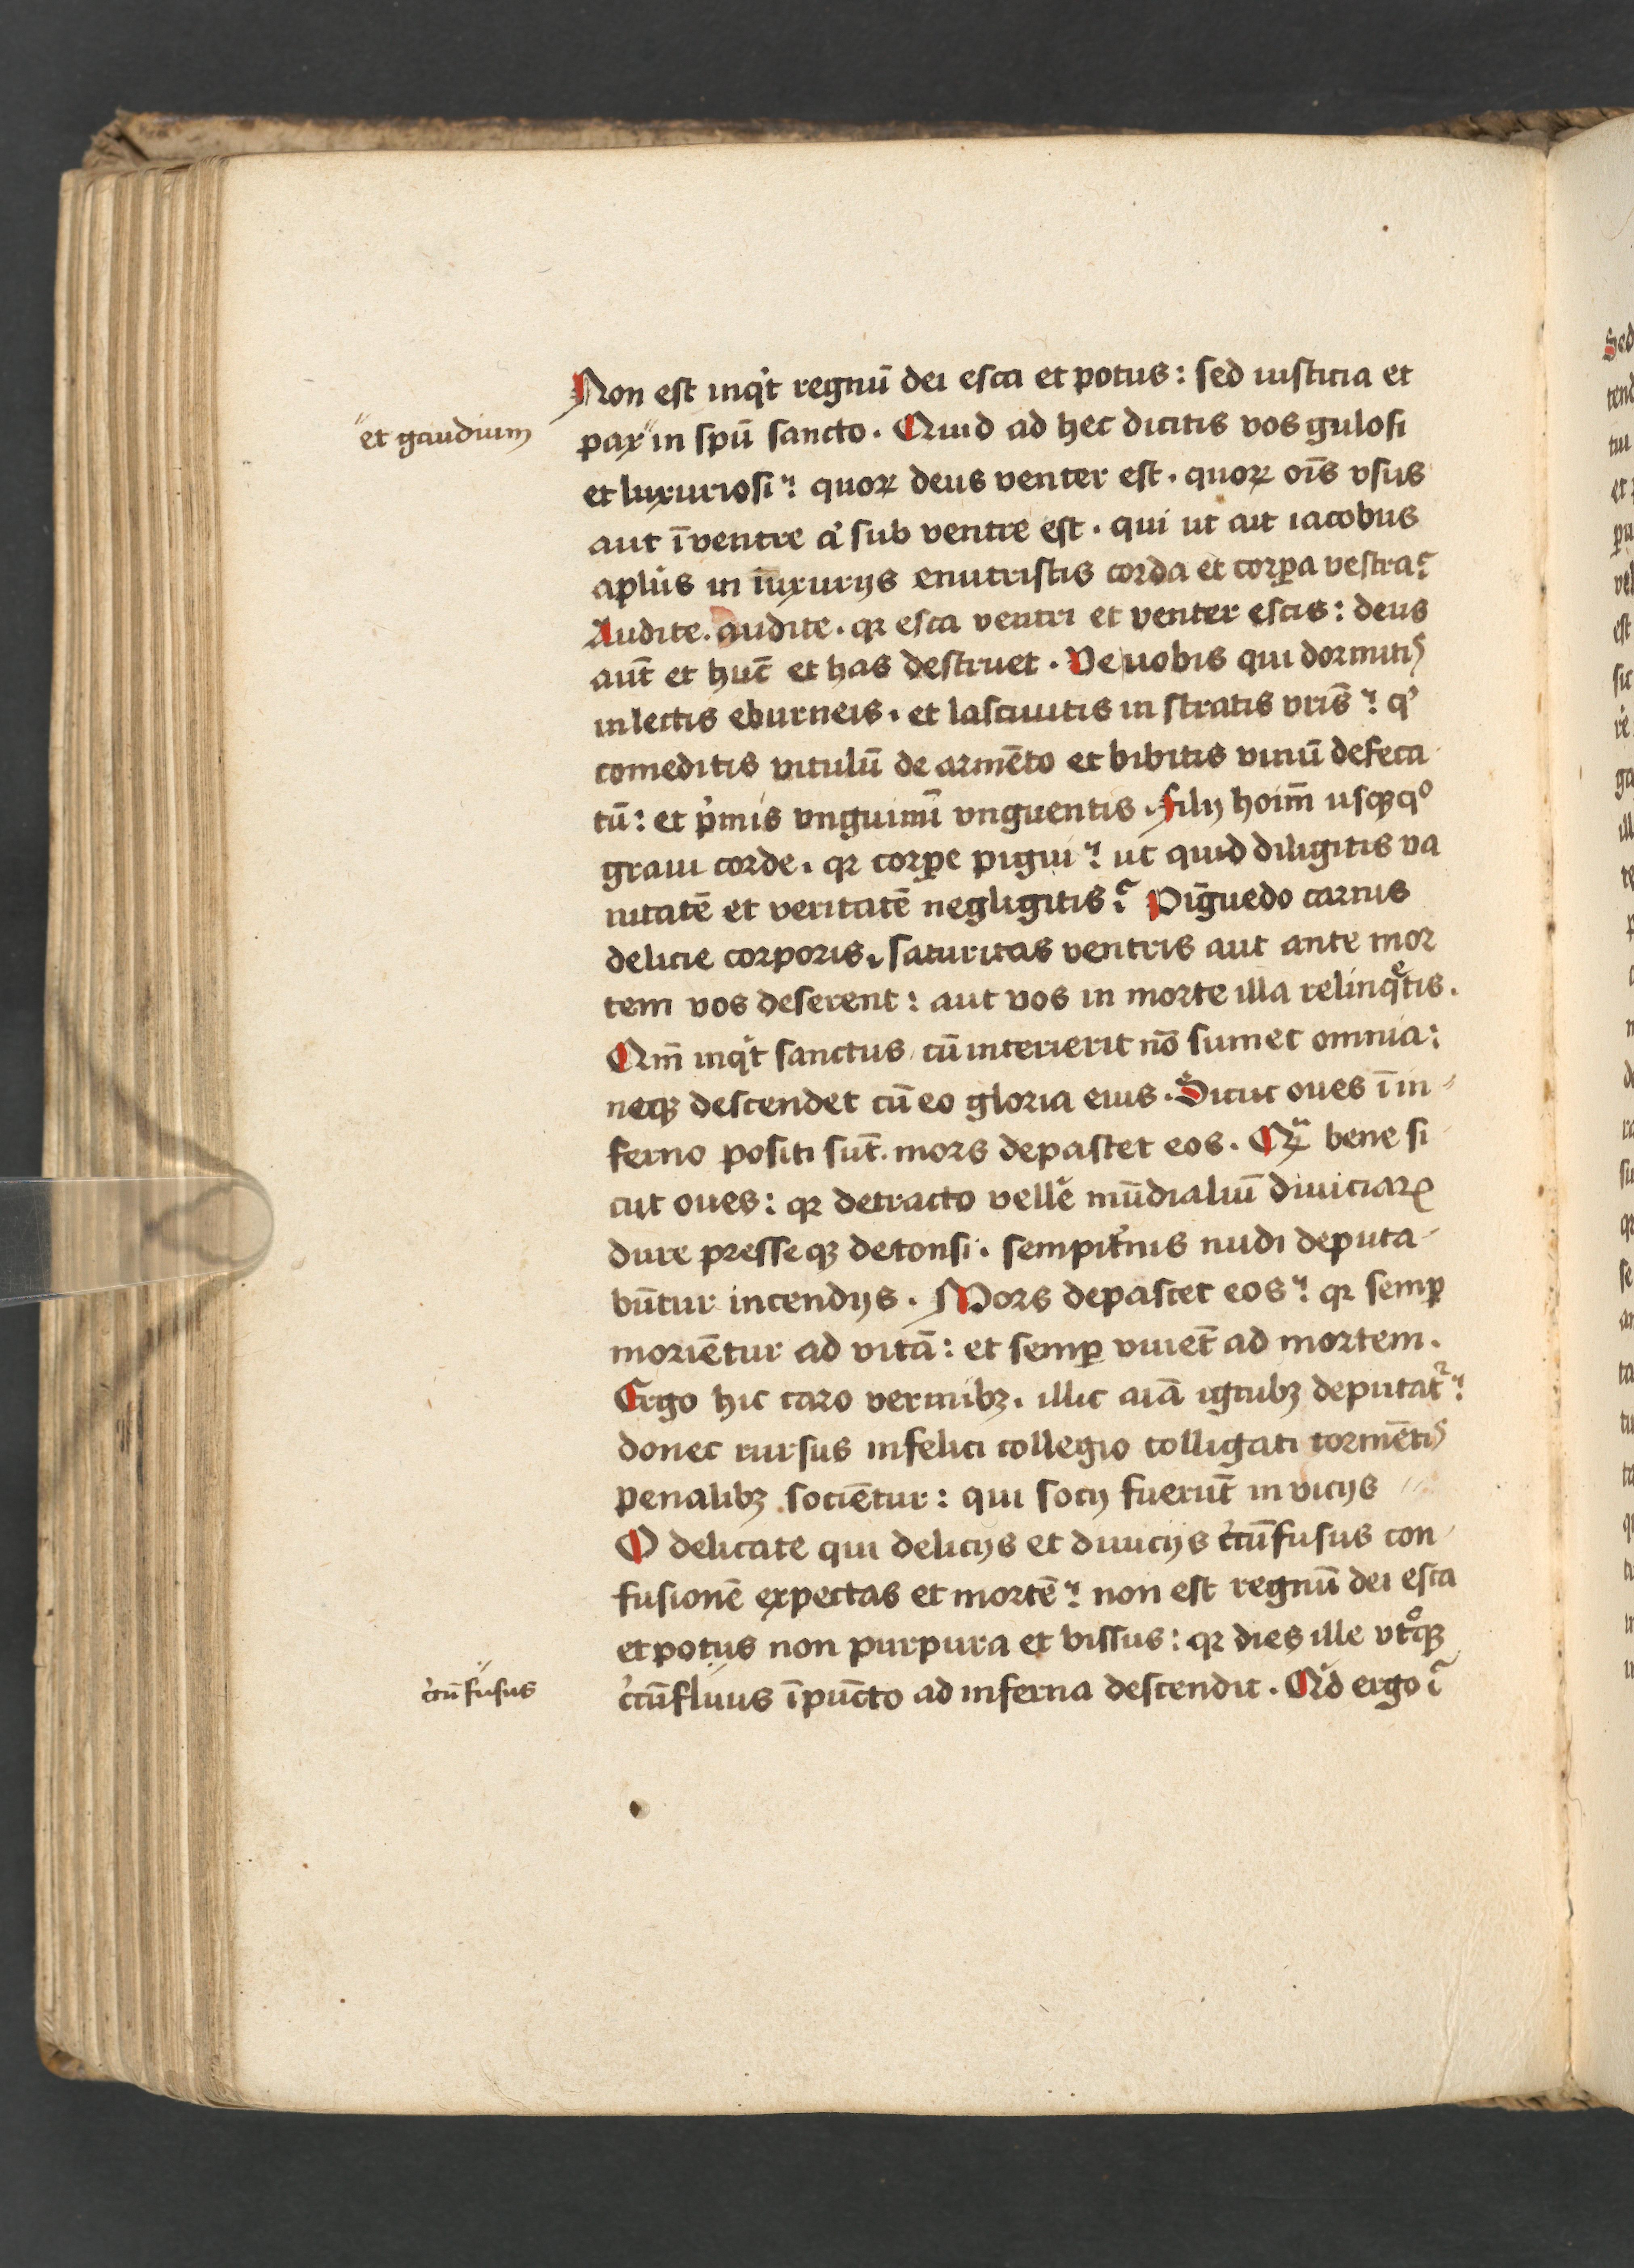 Non est inq̇t regnū dei esca et potus: sed iusticia et
et gaudium
pax in spū sancto. Quid ad hec dicitis vos gulosi
et luxuriosi? quoꝝ deus venter est. quoꝝ oīs vsus
aut ī ventre a' sub ventre est. qui ut ait iacobus
apl̄us in luxurijs enutristis corda et corꝑa vestra?
Audite. audite. qꝛ esca ventri et venter escis: deus
aut̄ et hūc et has destruet. Ve uobis qui dormitis
in lectis eburneis. et lasciuitis in stratis vr̄is? q'
comeditis vitulū de armēto et bibitis vinū defeca
tū: et p'mis vnguimī vnguentis. filij hoim̄ usqꝫqͦ
graui corde. qꝛ corꝑe pigui? ut quid diligitis va
nitatē et veritatē negligitis? Pīguedo carnis
delicie corporis. saturitas ventris aut ante mor
tem vos deserent: aut vos in morte illa relinqͤtis.
Qm̄ inq̇t sanctus cū interierit nō sumet omnia:
neqꝫ descendet cū eo gloria eius. Sicut oues ī in
ferno positi sūt. mors depascet eos. Qᷓ bene si
cut oues: qꝛ detracto velle' mūdialiū diuiciaꝝ
dure presseqꝫ detonsi. sempit'nis nudi deputa
būtur incendijs. Mors depascet eos? qꝛ semꝑ
moriētur ad vitā: et semꝑ viuēt ad mortem.
Ergo hic caro vermibꝫ. illic aīa ignibꝫ deputatʳ?
donec rursus infelici collegio colligati tormētis
penalibꝫ sociētur: qui socij fuerūt in vicijs
O delicate qui delicijs et diuicijs c'cūfusus con
fusionē expectas et mortē? non est regnū dei esca
et potus non purpura et bissus: qꝛ diues ille vtͦqꝫ
c'cūfusus
c'cūfluus ī pūcto ad inferna descendit. Qͥd ergo ī